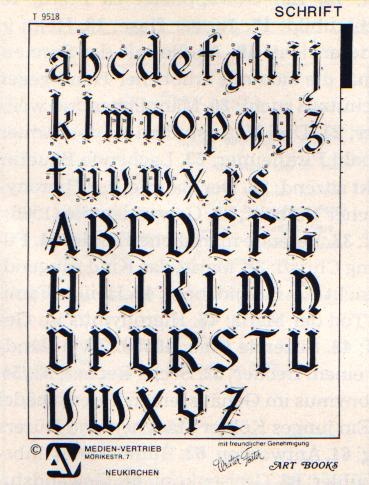 T 9518
SCHRIFT
abcdefghij
klmnopqyz
tuvwxrs
ABCDEFG
HIJKLMN
OPQRSTU
VWXYZ
© AV
MEDIEN-VERTRIEB
MÖRIKESTR. 7
NEUKIRCHEN
mit freundlicher Genehmigung
ART BOOKS